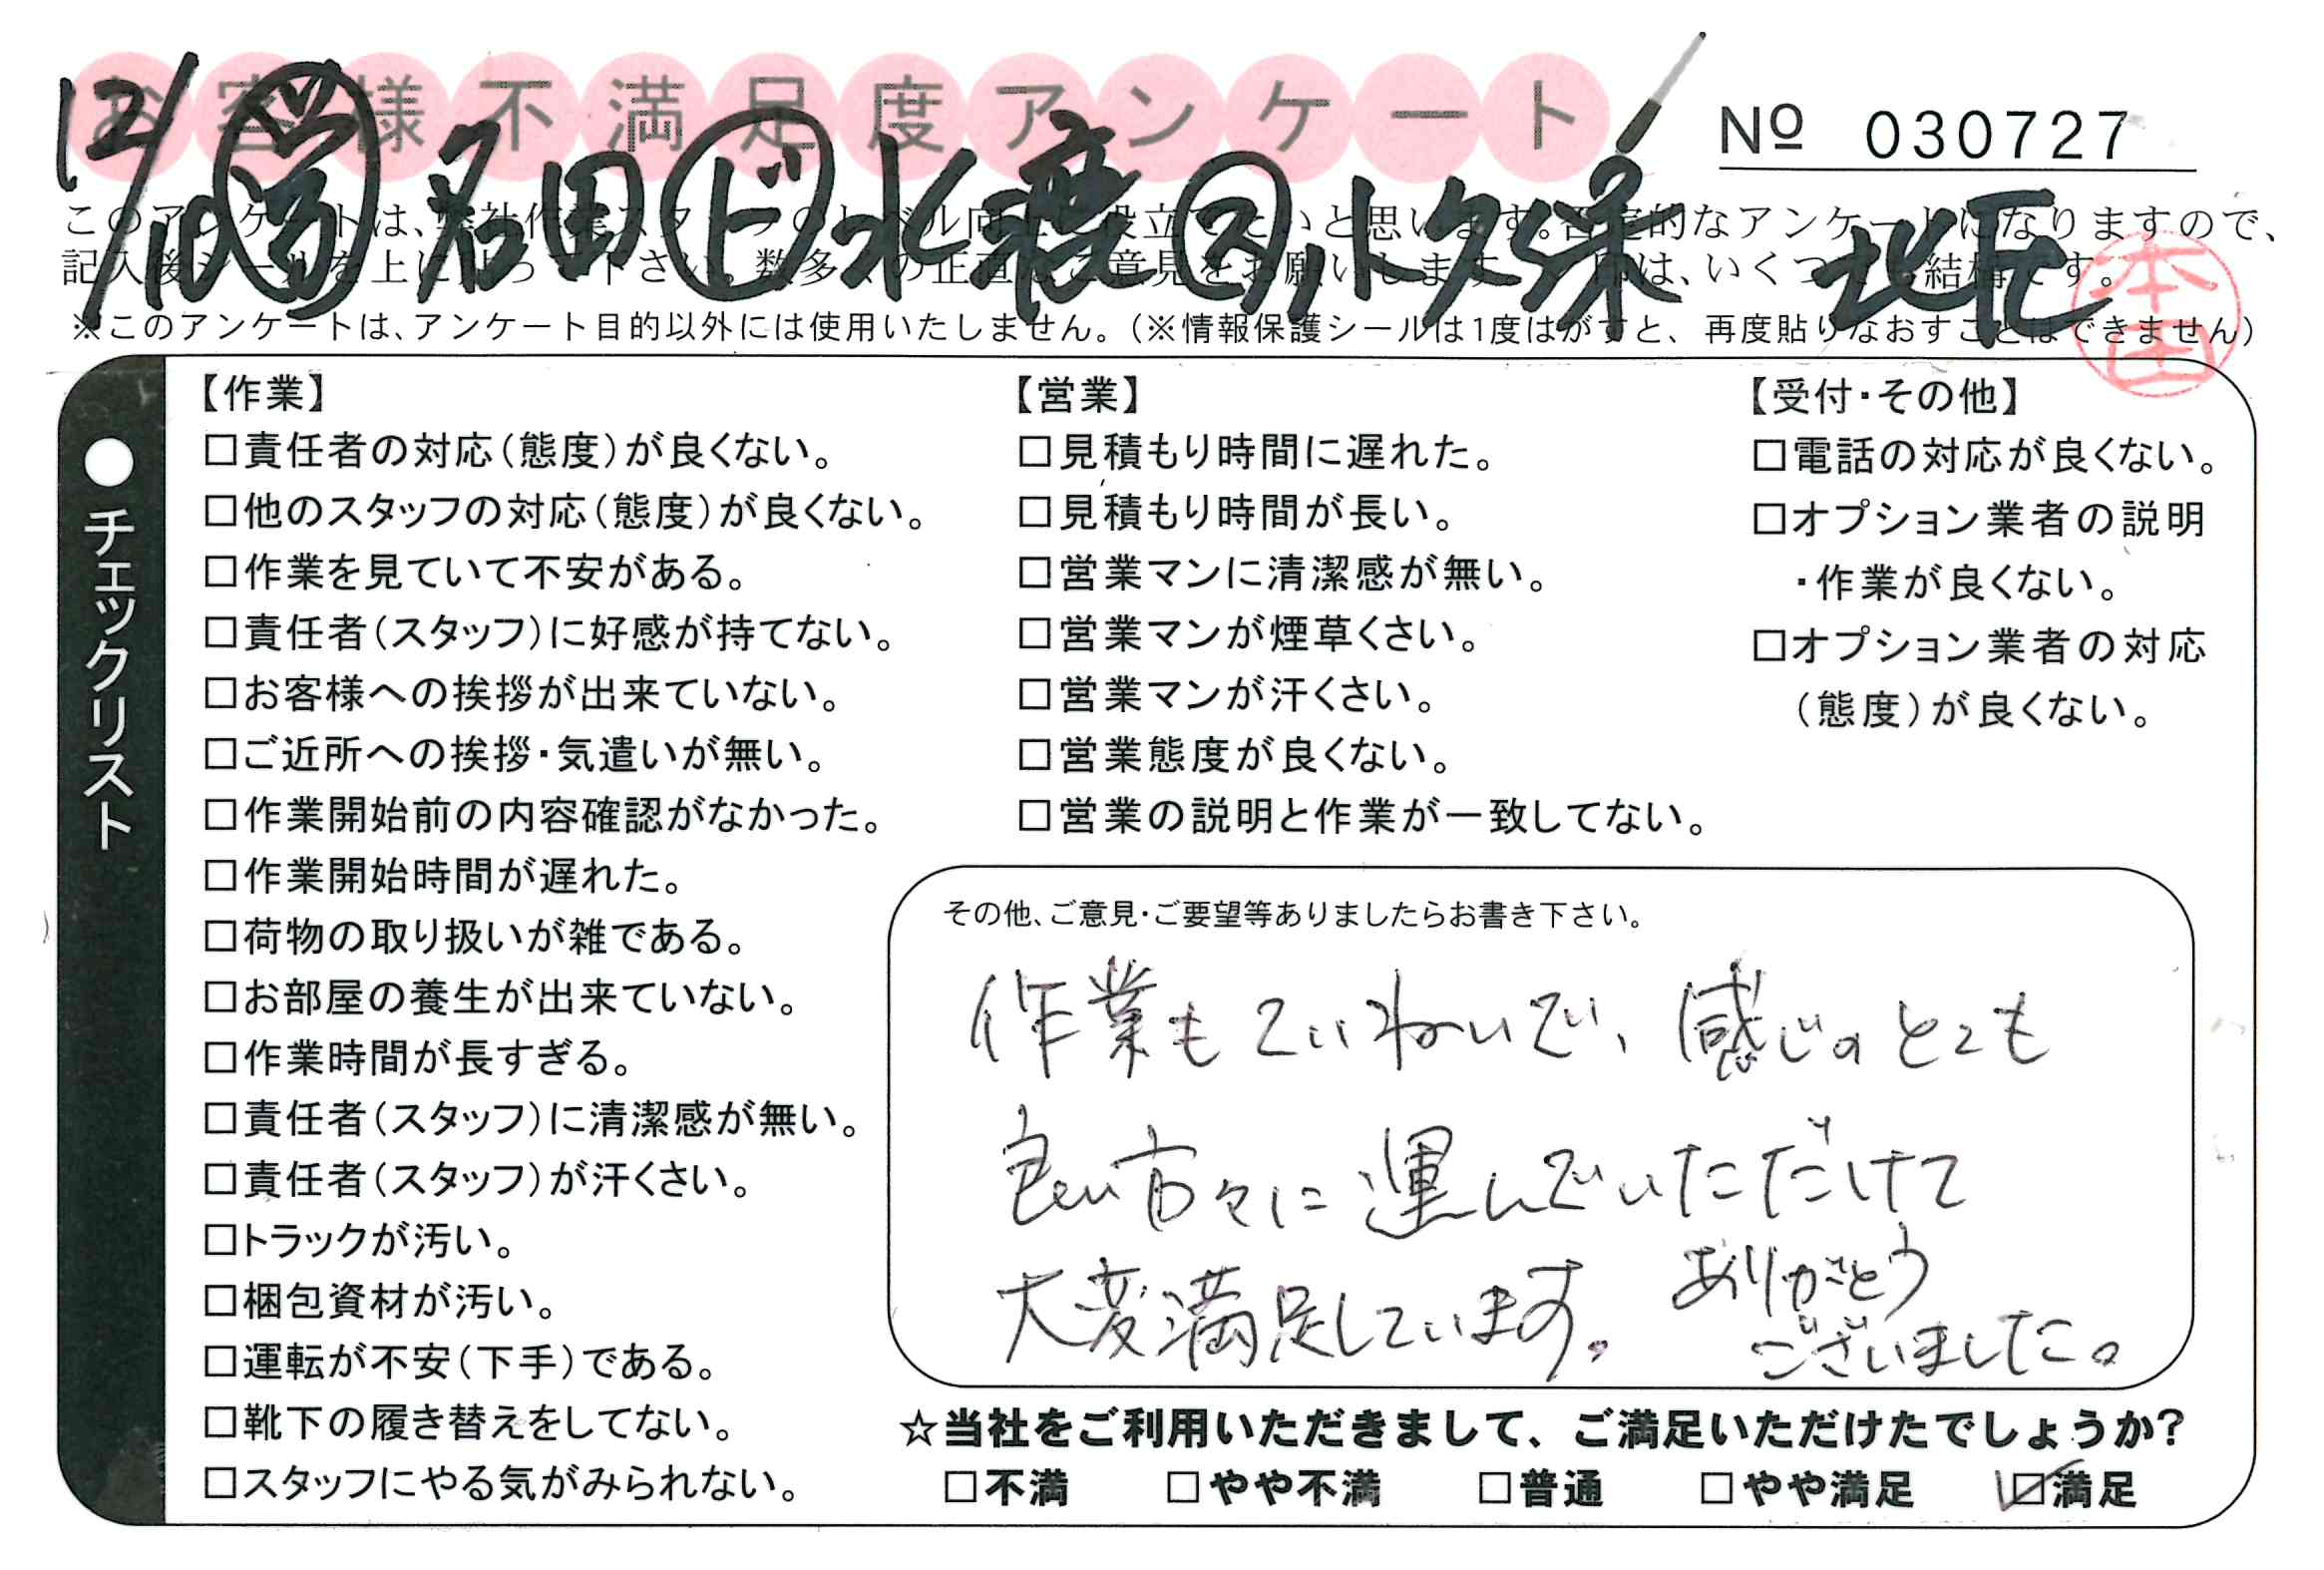 お客様不満足度アンケート
No 030727
12/10 営 名田 ビ 水穂 ス 小久保 北毛
このアンケートは、弊社作業スタッフのレベル向上に役立てたいと思います。否定的なアンケートになりますので、
記入後シールを上に貼って下さい。数多くの正直なご意見をお願いします。レ印は、いくつでも結構です。
本田
※このアンケートは、アンケート目的以外には使用いたしません。(※情報保護シールは1度はがすと、再度貼りなおすことはできません)
●チェックリスト
【作業】
□責任者の対応(態度)が良くない。
□他のスタッフの対応(態度)が良くない。
□作業を見ていて不安がある。
□責任者(スタッフ)に好感が持てない。
□お客様への挨拶が出来ていない。
□ご近所への挨拶・気遣いが無い。
□作業開始前の内容確認がなかった。
□作業開始時間が遅れた。
□荷物の取り扱いが雑である。
□お部屋の養生が出来ていない。
□作業時間が長すぎる。
□責任者(スタッフ)に清潔感が無い。
□責任者(スタッフ)が汗くさい。
□トラックが汚い。
□梱包資材が汚い。
□運転が不安(下手)である。
□靴下の履き替えをしてない。
□スタッフにやる気がみられない。
【営業】
□見積もり時間に遅れた。
□見積もり時間が長い。
□営業マンに清潔感が無い。
□営業マンが煙草くさい。
□営業マンが汗くさい。
□営業態度が良くない。
□営業の説明と作業が一致してない。
【受付・その他】
□電話の対応が良くない。
□オプション業者の説明
・作業が良くない。
□オプション業者の対応
(態度)が良くない。
その他、ご意見・ご要望等ありましたらお書き下さい。
作業もていねいで、感じのとても
良い方々に運んでいただけて
大変満足しています。ありがとう
ございました。
☆当社をご利用いただきまして、ご満足いただけたでしょうか?
□不満 □やや不満 □普通 □やや満足 ☑満足